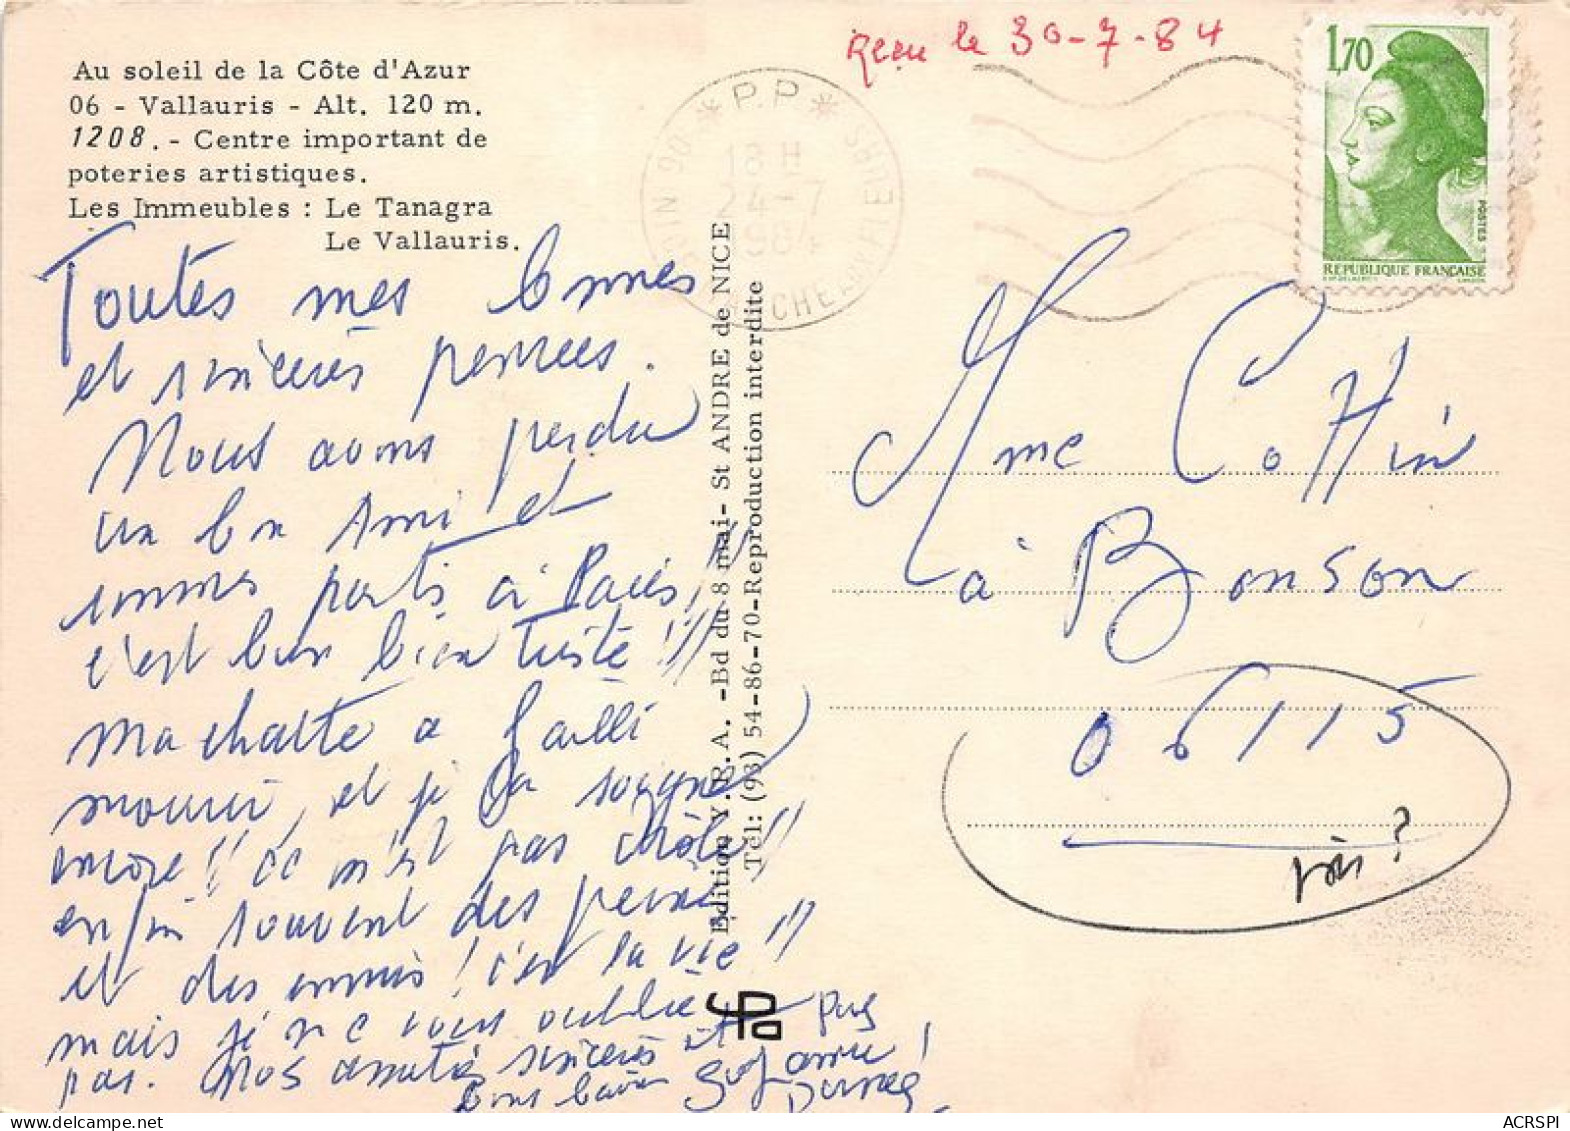 Au soleil de la Côte d'Azur
06 - Vallauris - Alt. 120 m.
1208. - Centre important de
poteries artistiques.
Les Immeubles : Le Tanagra
Le Vallauris.
Toutes mes bonnes
et sincères pensées.
Nous avons perdu
un bon Ami et
sommes partis à Paris,
c'est bien bien triste !!!
Ma chatte a failli
mourir, et je la soigne
encore !! ce n'est pas drôle !!
enfin souvent des peines
et des ennuis ! c'est la vie !!
mais je ne vous oublie
pas. Nos amitiés sincères et
bons baisers
Edition Y.P.A. -Bd du 8 mai- St ANDRE de NICE
Tél: (93) 54-86-70-Reproduction interdite
Reçu le 30-7-84
P.P
18 H
24-7
1984
1,70
POSTES
REPUBLIQUE FRANÇAISE
Mme Cottin
à Bonson
06115
près ?
ACRSPI